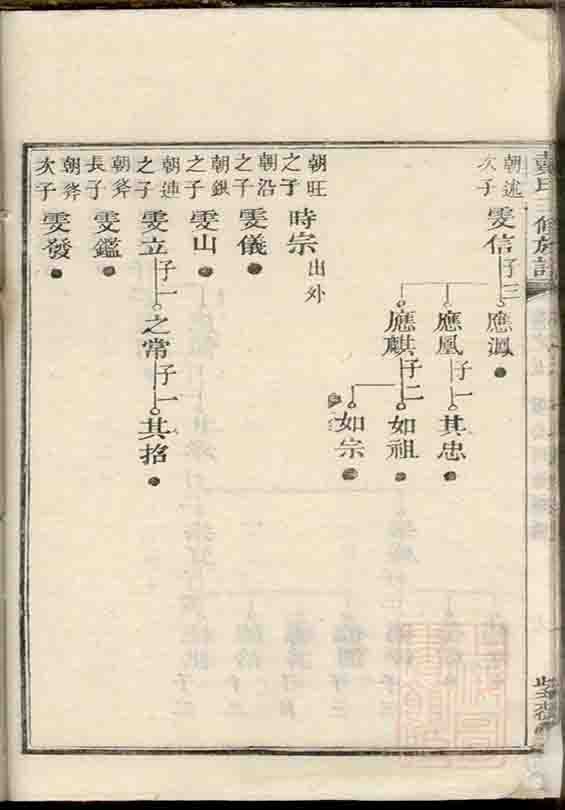 朝述
次子
雯信
子三
應鳳
子一
應麒
子二
其忠
如祖
如宗
朝旺
之子
時宗
出外
朝沿
之子
雯儀
朝銀
之子
雯山
朝連
之子
雯立
子一
之常
子一
其招
朝斧
長子
雯鑑
朝斧
次子
雯發